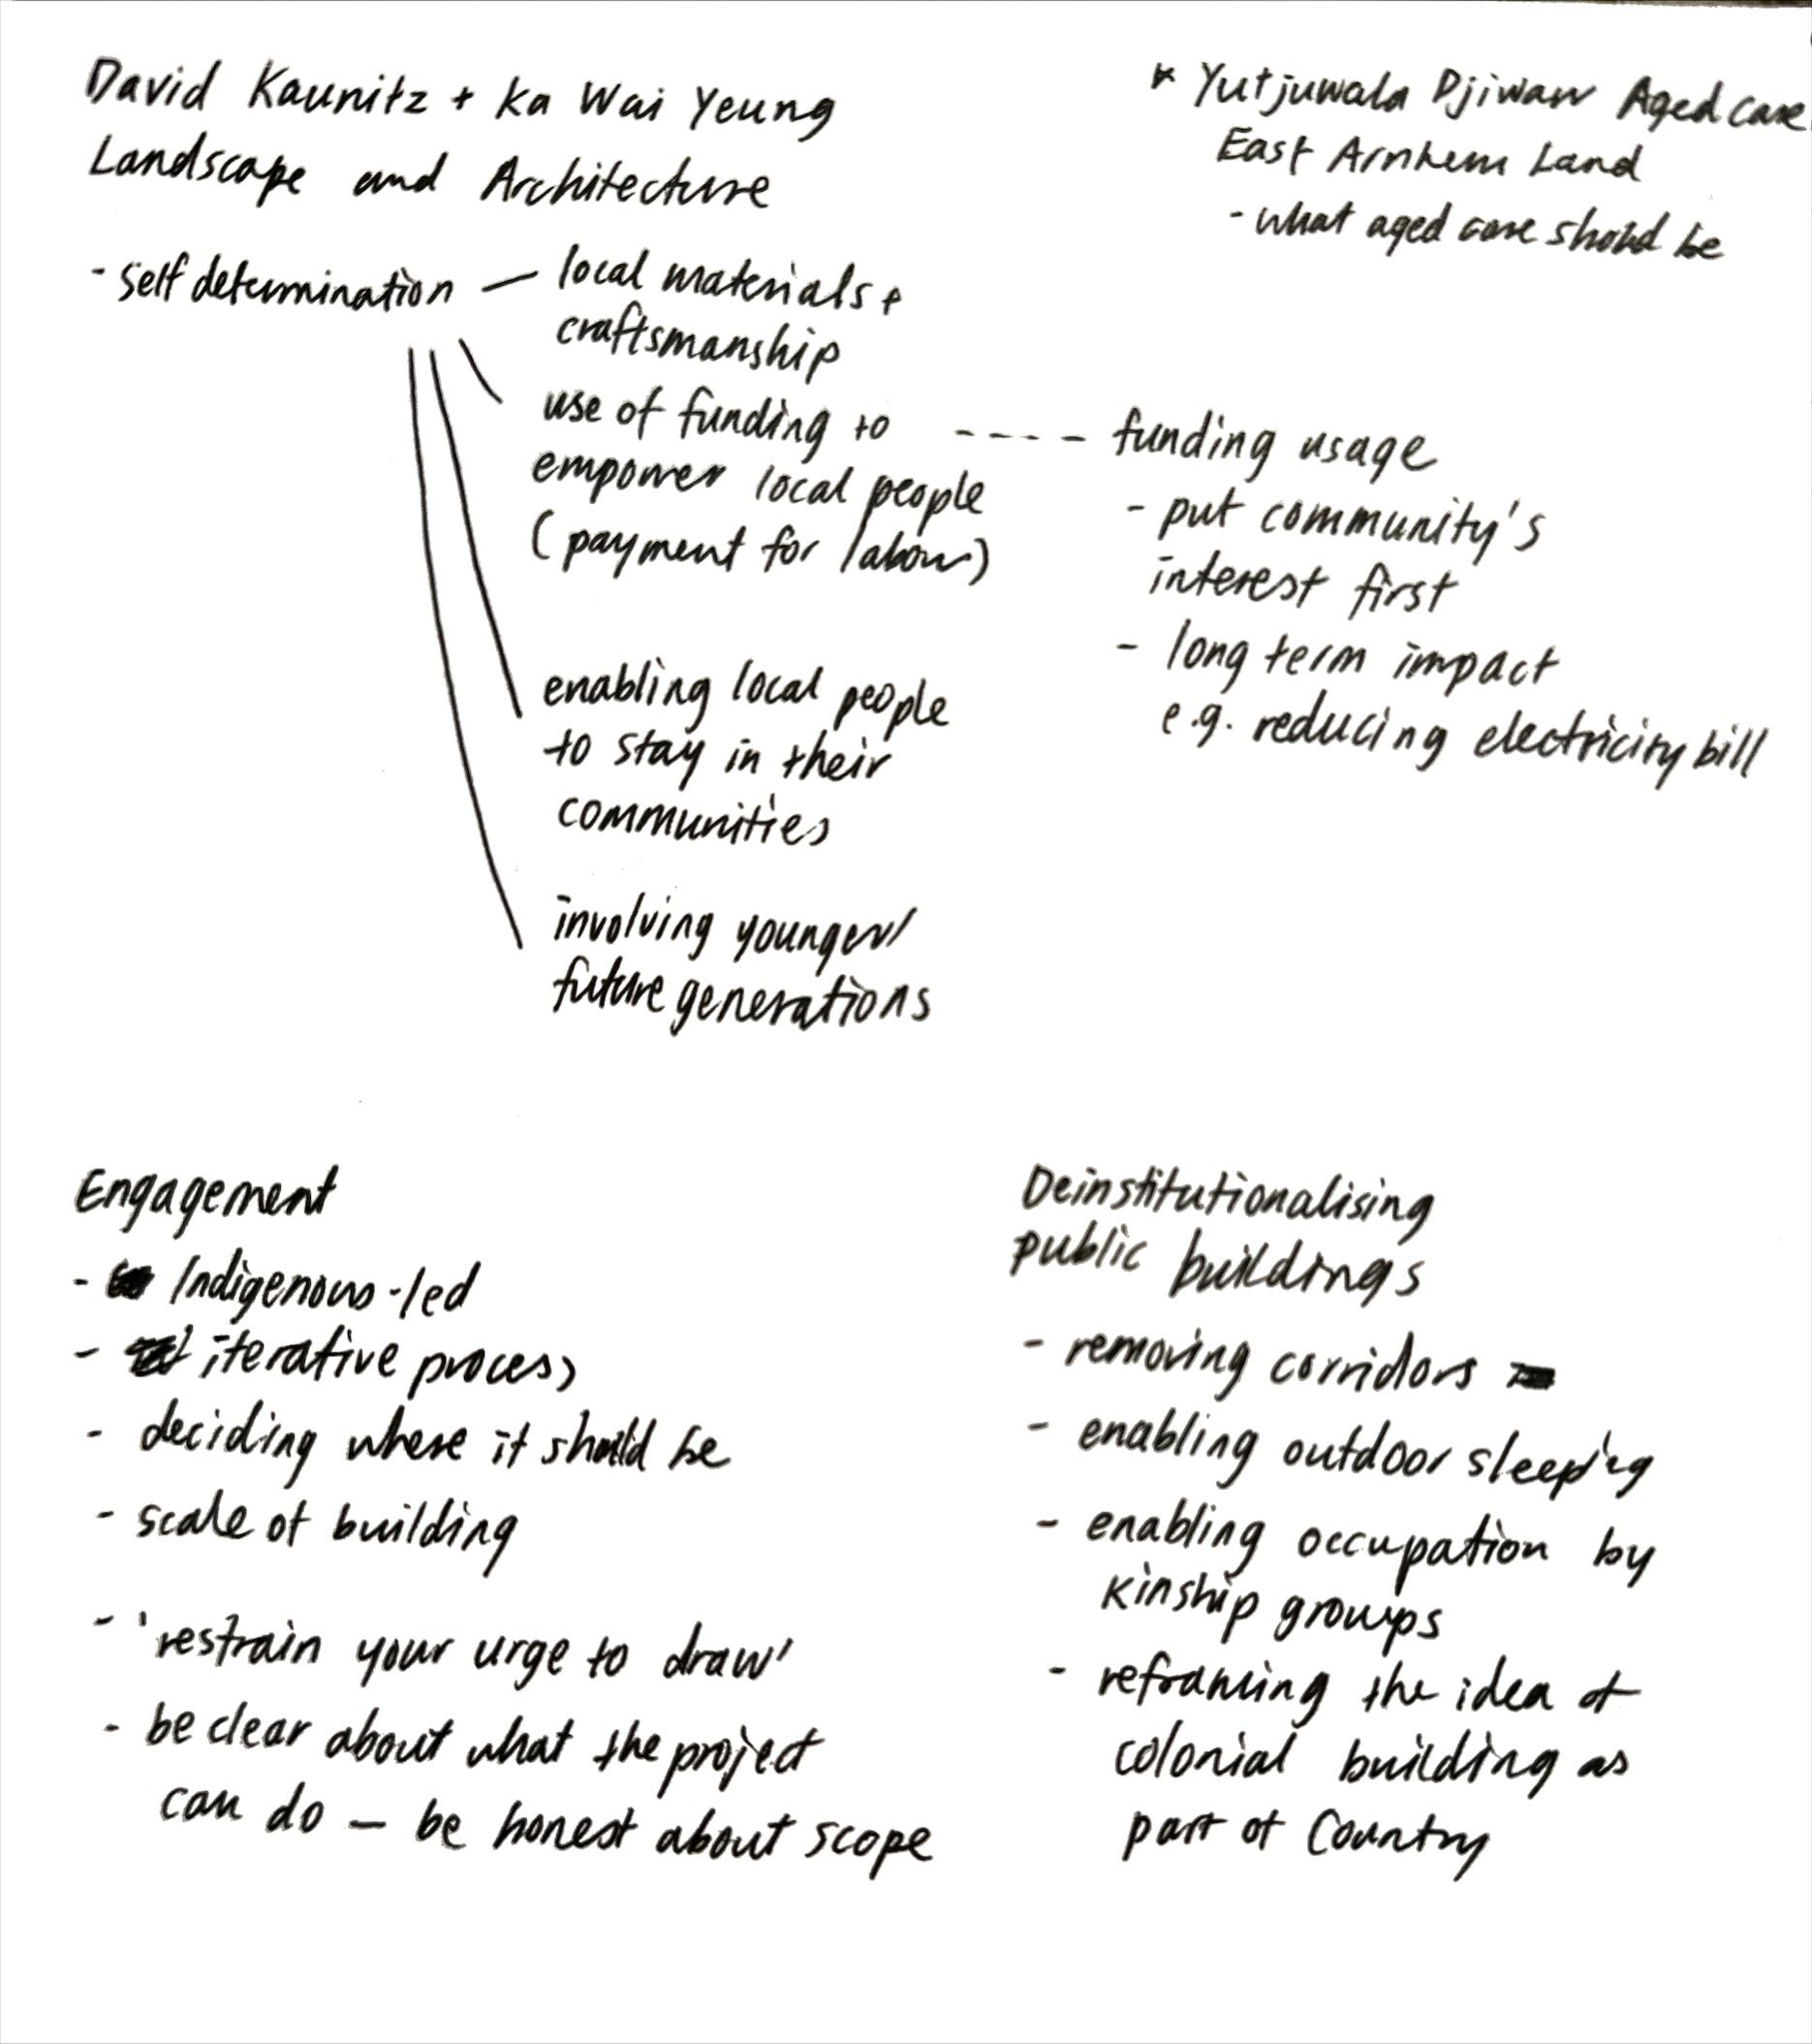 David Kaunitz + Ka Wai Yeung
Landscape and Architecture
- self determination — local materials +
craftsmanship
use of funding to
empower local people
(payment for labour)
enabling local people
to stay in their
communities
involving younger/
future generations
* Yutjuwala Djiwarr Aged care
East Arnhem Land
- what aged care should be
---- funding usage
- put community's
interest first
- long term impact
e.g. reducing electricity bill
Engagement
- Indigenous-led
- iterative process
- deciding where it should be
- scale of building
- 'restrain your urge to draw'
- be clear about what the project
can do — be honest about scope
Deinstitutionalising
public buildings
- removing corridors
- enabling outdoor sleeping
- enabling occupation by
kinship groups
- reframing the idea of
colonial building as
part of Country